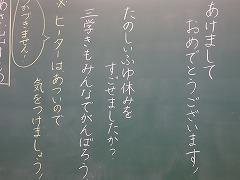 あけまして
おめでとうございます!
たのしいふゆ休みを
すごせましたか?
三学きもみんなでがんばろう
※ヒーターはあついので
気をつけましょう!
ができません!